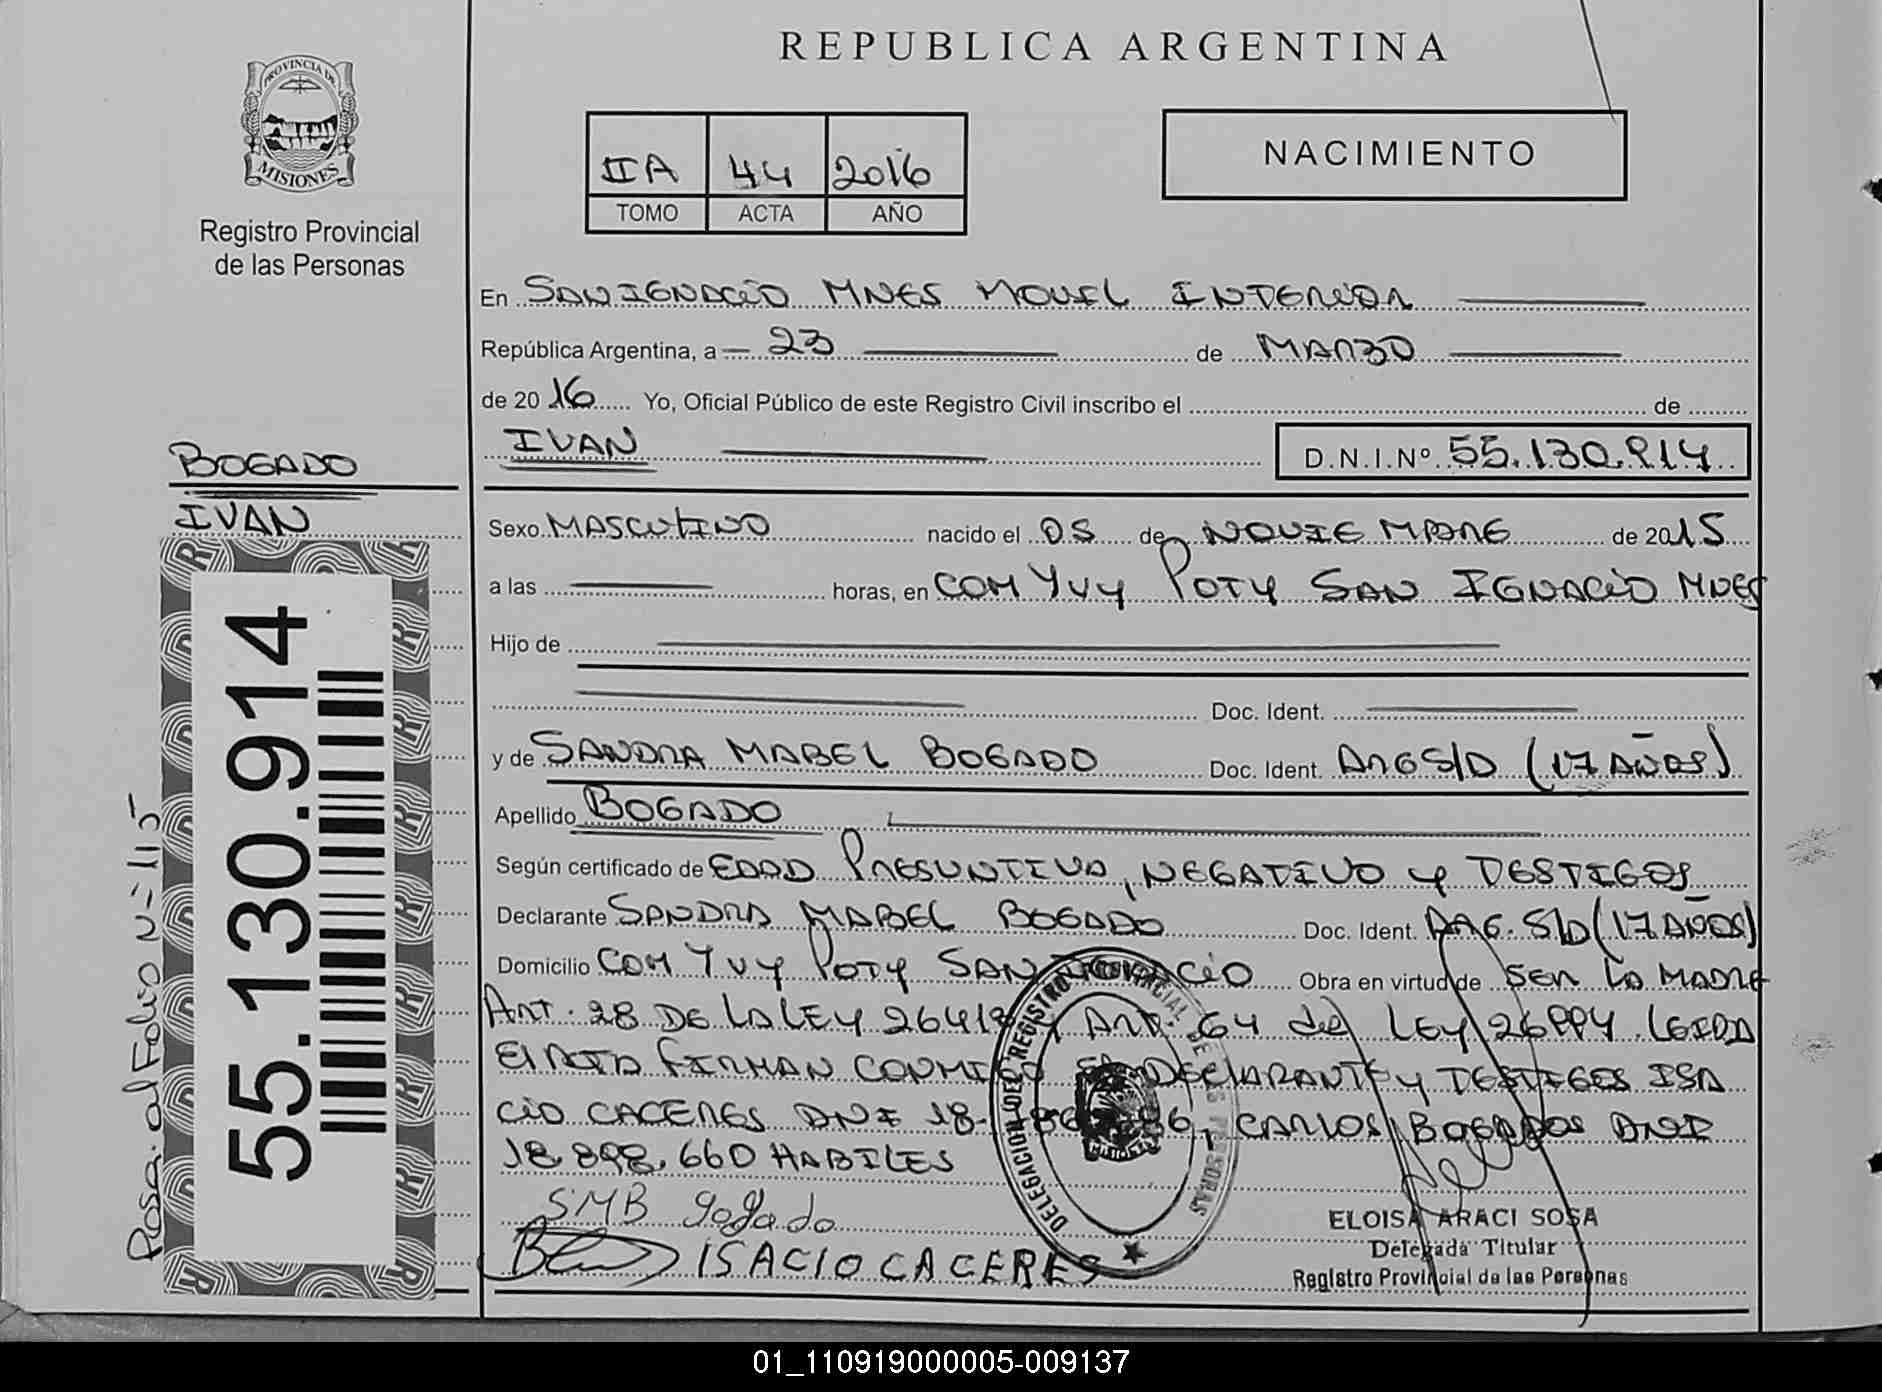 REPUBLICA ARGENTINA
PROVINCIA DE
MISIONES
Registro Provincial
de las Personas
IIA 44 2016
TOMO ACTA AÑO
NACIMIENTO
En SAN IGNACIO MNES MOVIL INTERIOR
República Argentina, a 23 de MARZO
de 2016 Yo, Oficial Público de este Registro Civil inscribo el de
IVAN D.N.I.Nº 55.130.914
BOGADO
IVAN
55.130.914
Pasa al Folio Nº 115
Sexo MASCULINO nacido el 05 de NOVIEMBRE de 2015
a las horas, en COM YVY POTY SAN IGNACIO MNES
Hijo de
Doc. Ident.
y de SANDRA MABEL BOGADO Doc. Ident. ARG S/D (17 AÑOS)
Apellido BOGADO
Según certificado de EDAD PRESUNTIVA, NEGATIVO y TESTIGOS
Declarante SANDRA MABEL BOGADO Doc. Ident. ARG. S/D (17 AÑOS)
Domicilio COM YVY POTY SAN IGNACIO Obra en virtud de SER LA MADRE
ART. 28 DE LA LEY 26413 y ART. 64 de LEY 26994. LEIDA
El ACTA FIRMAN CONMIGO DECLARANTE y TESTIGOS ISA
CIO CACERES DNI 18. CARLOS BOGADOS DNI
18.898.660 HABILES
SMB Bogado
ISACIO CACERES
DELEGACION DEL REGISTRO PROVINCIAL DE LAS PERSONAS
MISIONES
ELOISA ARACI SOSA
Delegada Titular
Registro Provincial de las Personas
01_110919000005-009137